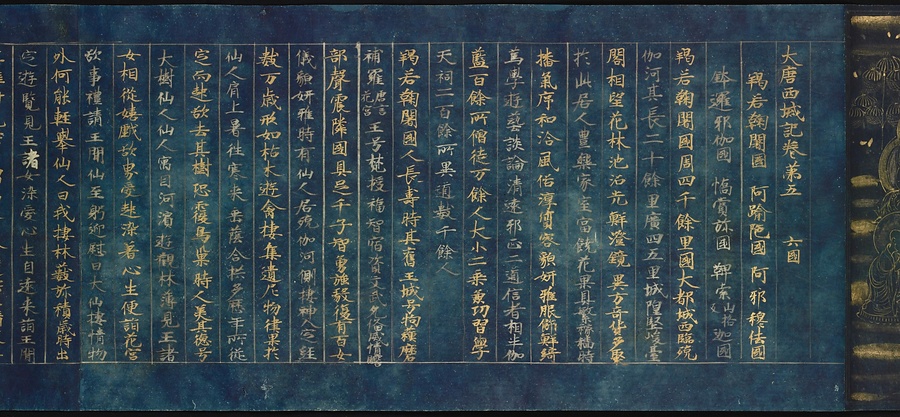 大唐西域記卷第五 六國
羯若鞠闍國 阿踰陁國 阿邪穆佉國
鉢邏邪伽國 憍賞弥國 鞞索山格反迦國
羯若鞠闍國周四千餘里國大都城西臨殑
伽河其長二十餘里廣四五里城隍堅峻臺
閣相望花林池沼光鮮澄鏡異方奇貨多聚
於此居人豊樂家室富饒花菓具繁稼穡時
播氣序和洽風俗淳質容貌妍雅服飾鮮綺
篤學遊藝談論清遠邪正二道信者相半伽
藍百餘所僧徒万餘人大小二乘兼功習學
天祠二百餘所異道數千餘人
羯若鞠闍國人長壽時其舊王城号拘蘓磨
補羅唐言花宮王号梵授福智宿資文武允備威懾贍
部聲震隣國具足千子智勇弘毅復有百女
儀貌妍雅時有仙人居殑伽河側棲神入定經
數万歲形如枯木遊禽棲集遺尼拘律果於
仙人肩上暑往寒來垂蔭合拱多歷年所從
定而起欲去其樹恐覆鳥巢時人美其德号
大樹仙人仙人寓目河濱遊觀林薄見王諸
女相從嬉戲欲界愛起染著心生便詣花宮
欲事禮請王聞仙至躬迎慰曰大仙棲情物
外何能輕舉仙人曰我棲林藪弥積歲時出
定遊覽見王諸女染愛心生自遠來請王聞